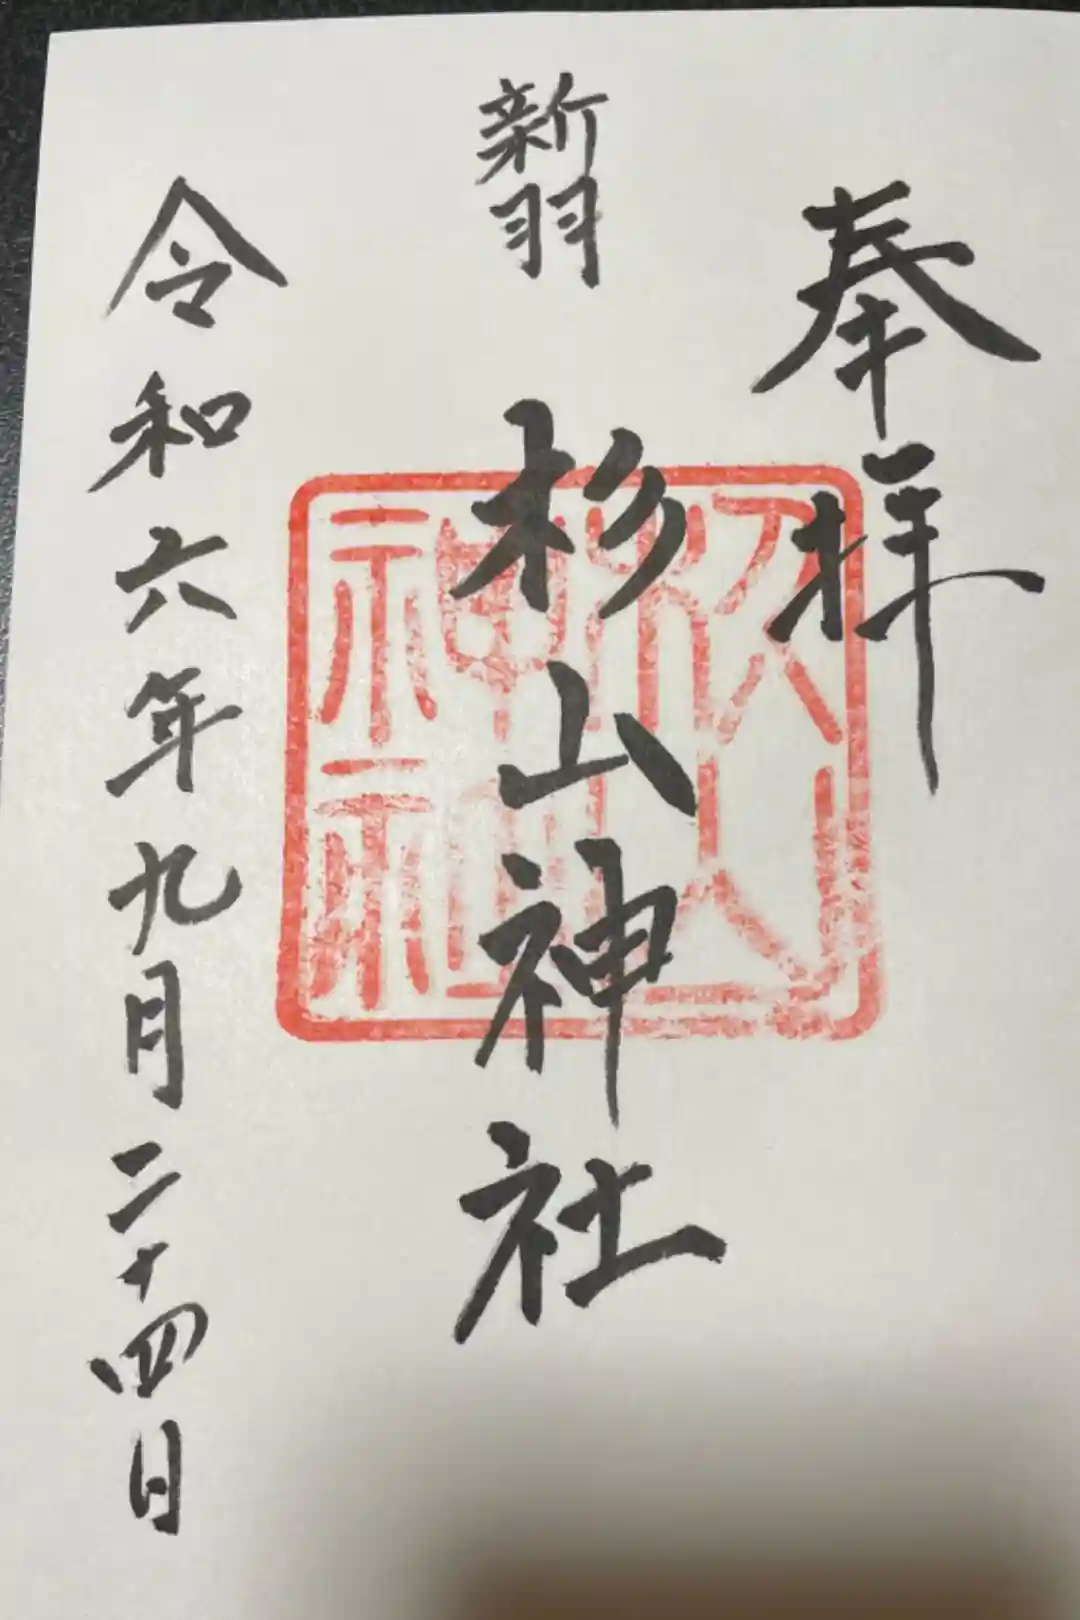 奉拝
新羽
杉山神社
杉山
神社
令和六年九月二十四日